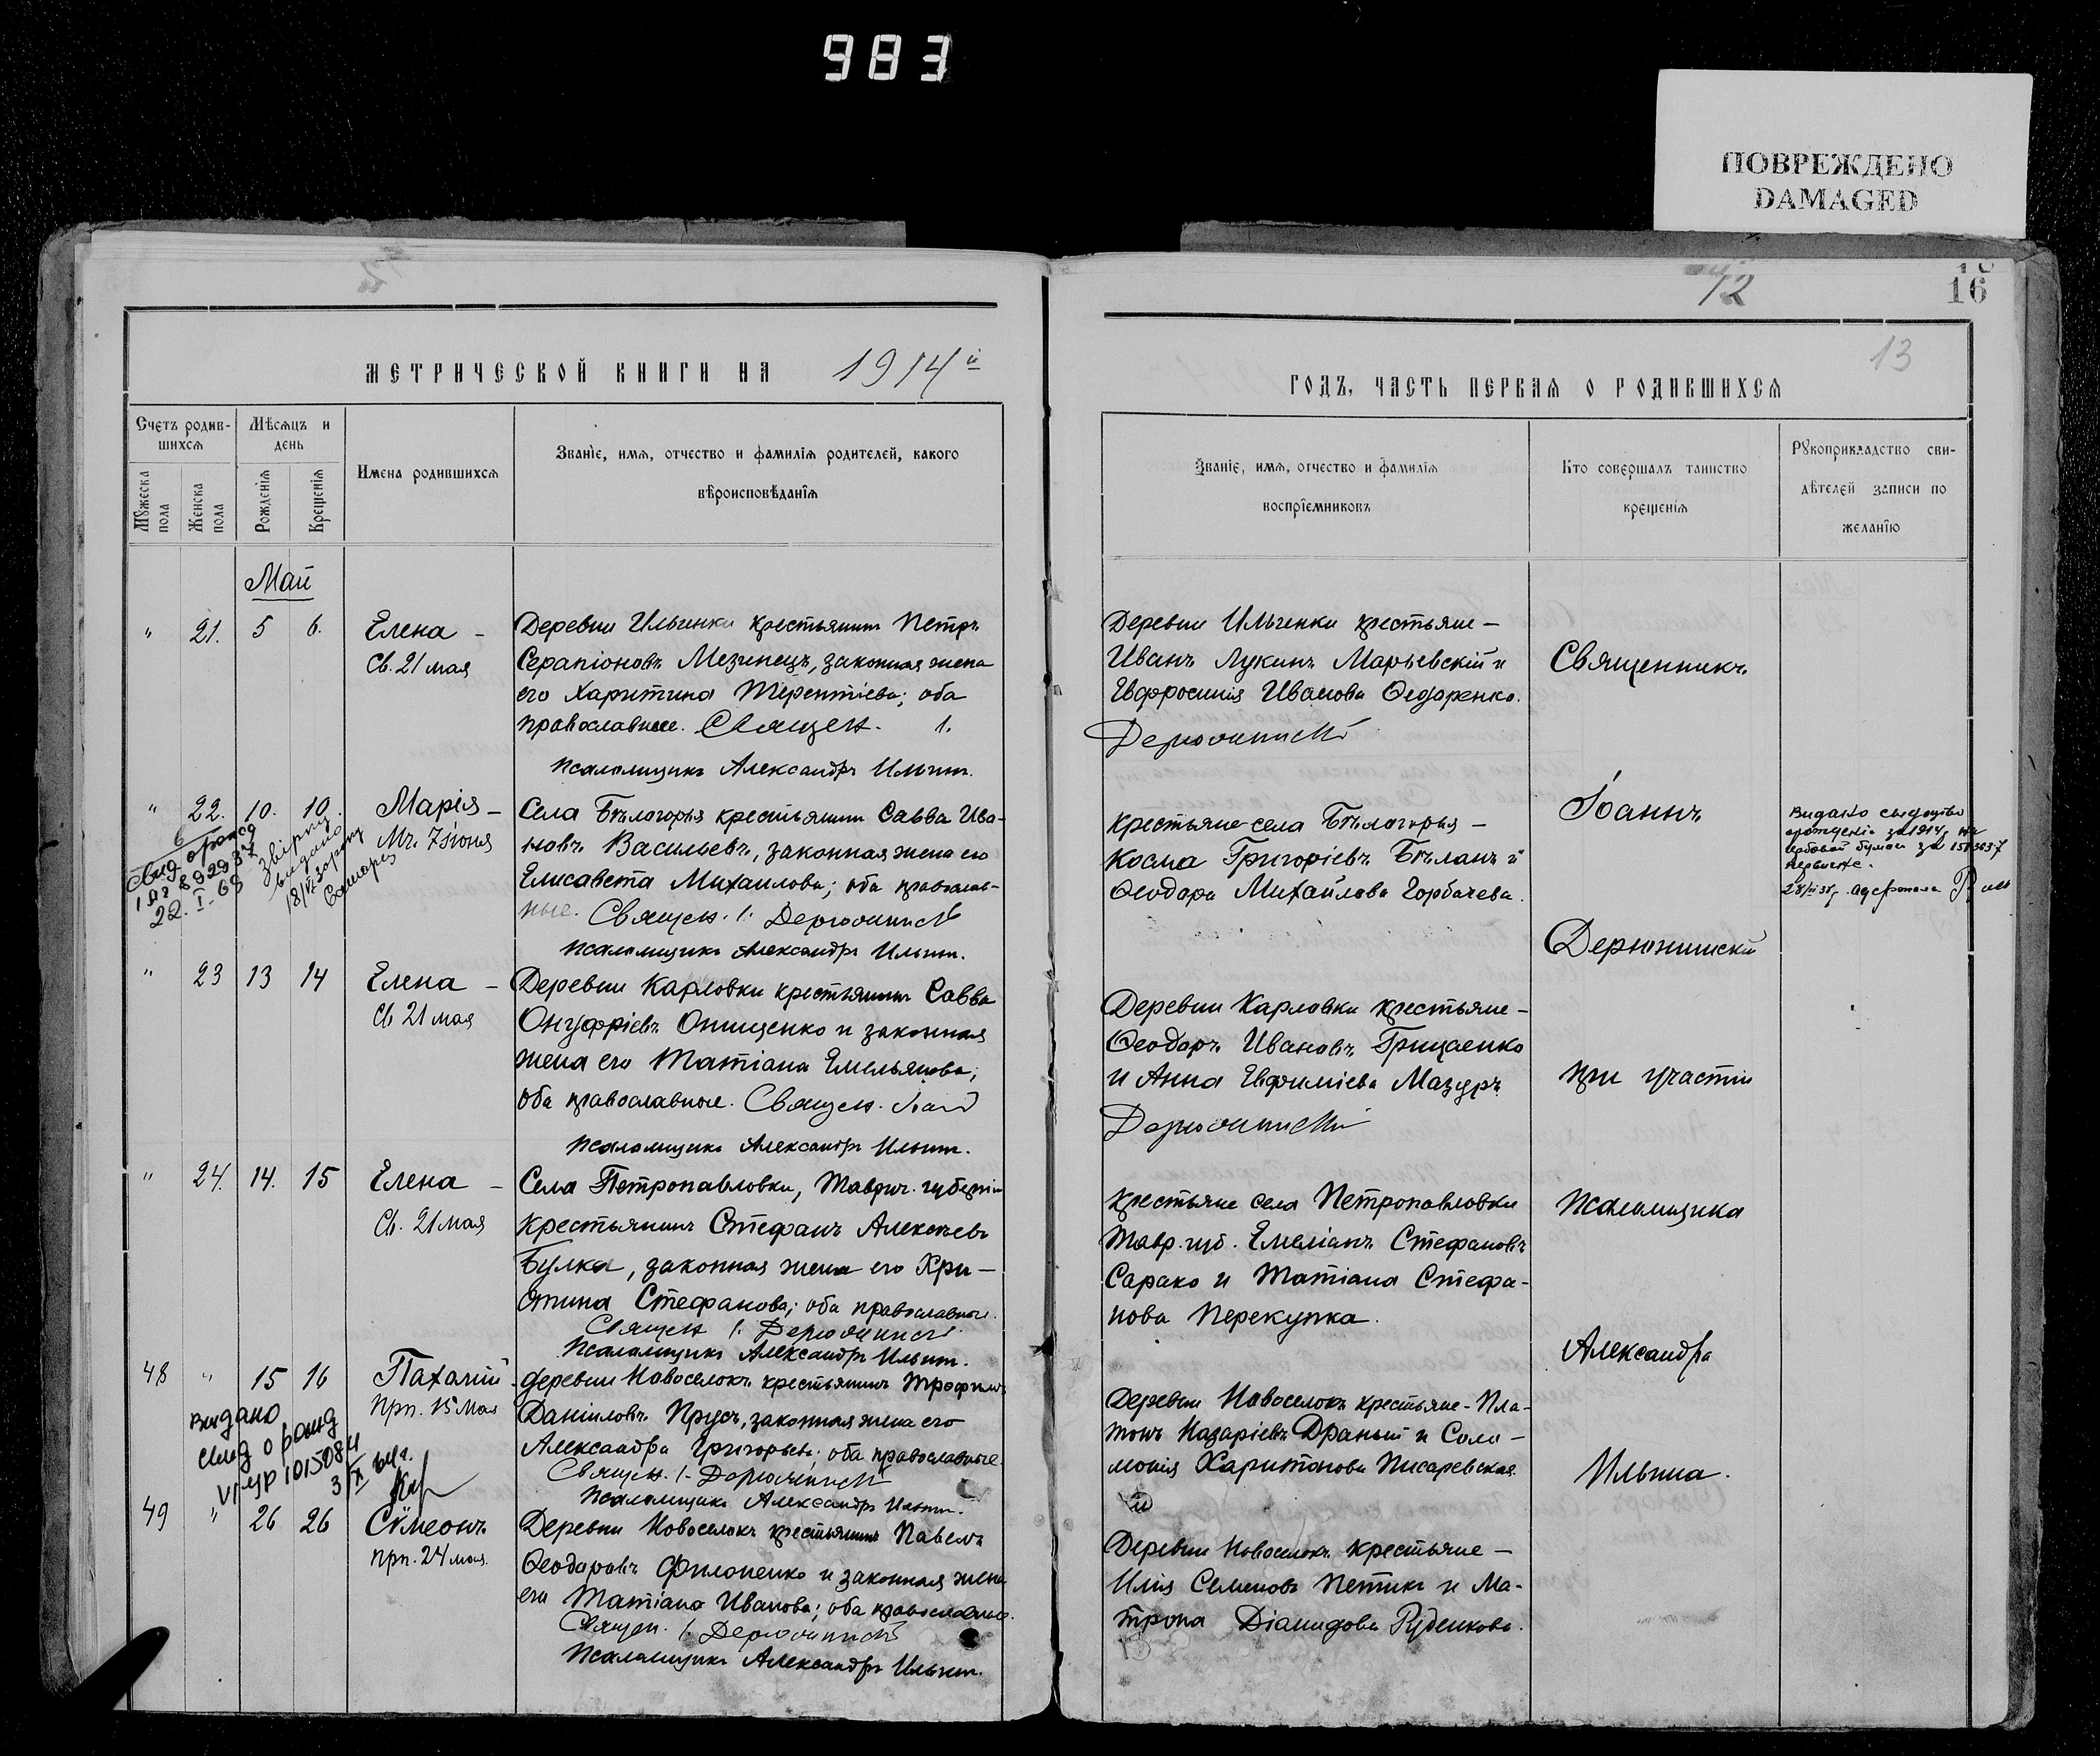 983
ПОВРЕЖДЕНО
DAMAGED
12
16
13
МЕТРИЧЕСКОЙ КНИГИ НА 1914й
ГОДЪ, ЧАСТЬ ПЕРВАЯ О РОДИВШИХСЯ
Счетъ родив-
шихся
Мѣсяцъ и
день
Мужеска
пола
Женска
пола
Рожденія
Крещенія
Имена родившихся
Званіе, имя, отчество и фамилія родителей, какого
вѣроисповѣданія
Званіе, имя, отчество и фамилія
воспріемниковъ
Кто совершалъ таинство
крещенія
Рукоприкладство сви-
дѣтелей записи по
желанію
Май
" 21. 5 6. Елена –
Св. 21 мая
Деревни Ильченки крестьянинъ Петръ
Серапіоновъ Мезинецъ, законная жена
его Харитина Терентіева; оба
православные. Священ. І.
Псаломщикъ Александръ Ильинъ.
Деревни Ильченки крестьяне –
Иванъ Лукинъ Марьевскій и
Евфросинія Иванова Ѳедоренко.
" 22. 10. 10. Марія –
Мч. 7 іюня
Села Бѣлогорья крестьянинъ Савва Ива-
новъ Васильевъ, законная жена его
Елисавета Михаилова; оба православ-
ные. Священ. І. Дерюжинскій
Псаломщикъ Александръ Ильинъ.
крестьяне села Бѣлогорья –
Косма Григоріевъ Бѣланъ и
Ѳеодора Михайлова Горбачева.
Свид о рожд
22. I. 69
видано
Видано свідоцтво
28/
" 23 13 14 Елена –
Св 21 мая
Деревни Карловки крестьянинъ Савва
Онуфріевъ Онищенко и законная
жена его Татіана Емельянова;
оба православные. Священ. Іоан
Псаломщикъ Александръ Ильинъ.
Деревни Карловки крестьяне –
Ѳеодоръ Ивановъ Грицаенко
и Анна Евфиміева Мазуръ
" 24. 14. 15 Елена –
Св. 21 мая
Села Петропавловки, Таврич. губерніи
крестьянинъ Стефанъ Алексѣевъ
Булка, законная жена его Хри-
стина Стефанова; оба православные.
Священ І. Дерюжинскій
Псаломщикъ Александръ Ильинъ.
крестьяне села Петропавловки
Тавр. губ. Емеліанъ Стефановъ
Сарако и Татіана Стефа-
нова Перекупка.
48 " 15 16 Пахомій
прп. 15 мая
деревни Новоселокъ крестьянинъ Трофимъ
Даніиловъ Прусъ, законная жена его
Александра Григорьева; оба православные.
Священ. І. Дерюжинскій
Псаломщикъ Александръ Ильинъ.
Деревни Новоселокъ крестьяне – Пла-
тонъ Назаріевъ Драный и Соло-
монія Харитонова Писаревская.
Видано
свид о рожд
49 " 26 26 Сѵмеонъ
прп. 24 мая.
Деревни Новоселокъ крестьянинъ Павелъ
Ѳеодоровъ Филоненко и законная жена
его Татіана Иванова; оба православные.
Священ. І. Дерюжинскій
Псаломщикъ Александръ Ильинъ.
Деревни Новоселокъ крестьяне –
Илія Семеновъ Петикъ и Ма-
трона Діамидова Руденкова.
Священникъ
Іоаннъ
Дерюжинскій
при участіи
псаломщика
Александра
Ильина.